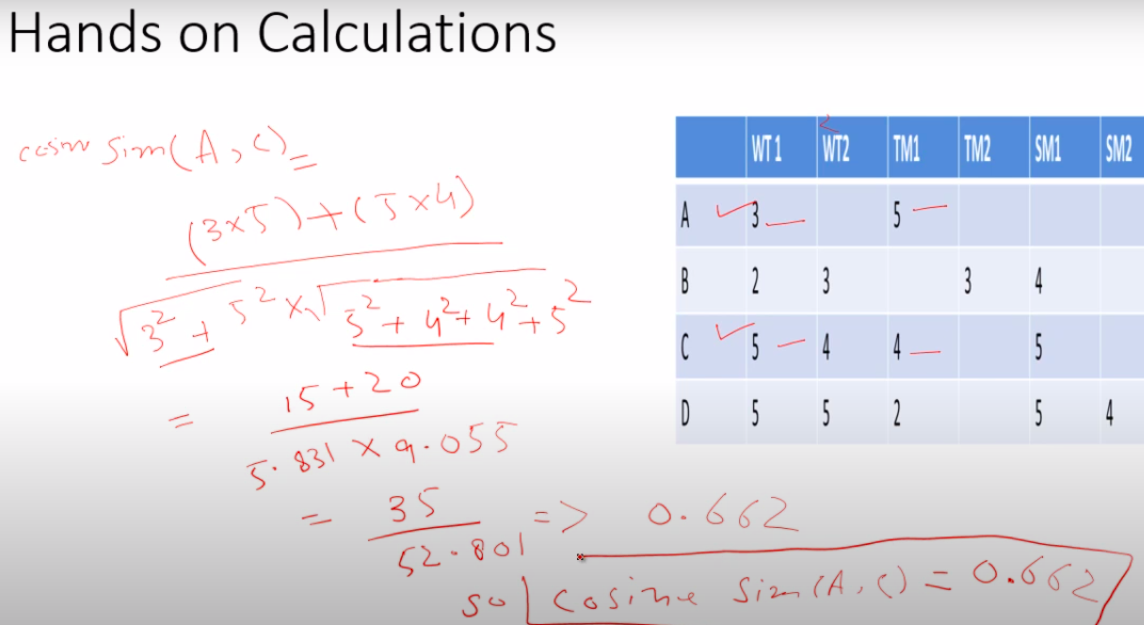 Hands on Calculations
cosine Sim(A, C) =
(3×5)+(5×4)
√3²+5² × √5²+4²+4²+5²
= 15+20
5.831 × 9.055
= 35 => 0.662
52.801
so cosine Sim(A, C) = 0.662
WT 1 WT2 TM1 TM2 SM1 SM2
A 3 5
B 2 3 3 4
C 5 4 4 5
D 5 5 2 5 4